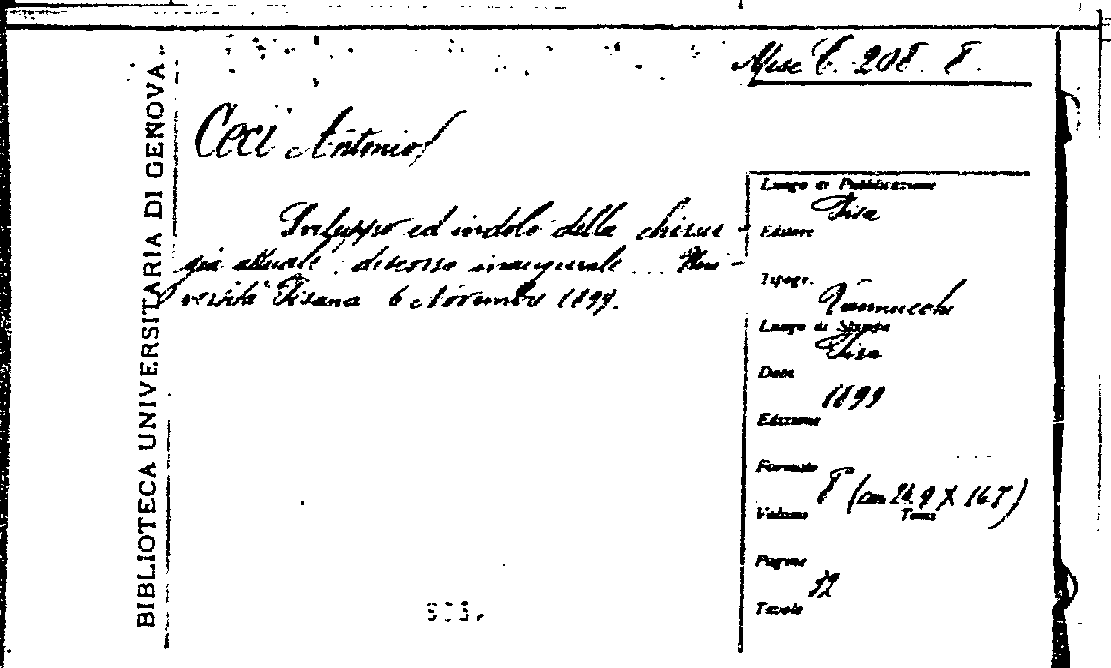 Misc C. 208. 8.
BIBLIOTECA UNIVERSITARIA DI GENOVA
Ceci Antonio
Sviluppo ed indole della chirur-
gia attuale: discorso inaugurale Uni-
versità Pisana 6 Novembre 1899.
Luogo di Pubblicazione
Pisa
Editore
Tipogr.
Vannucchi
Luogo di Stampa
Pisa
Data
1899
Edizione
Formato
8° (cm 24.9 X 16.7)
Volume Tomi
Pagine
32
Tavole